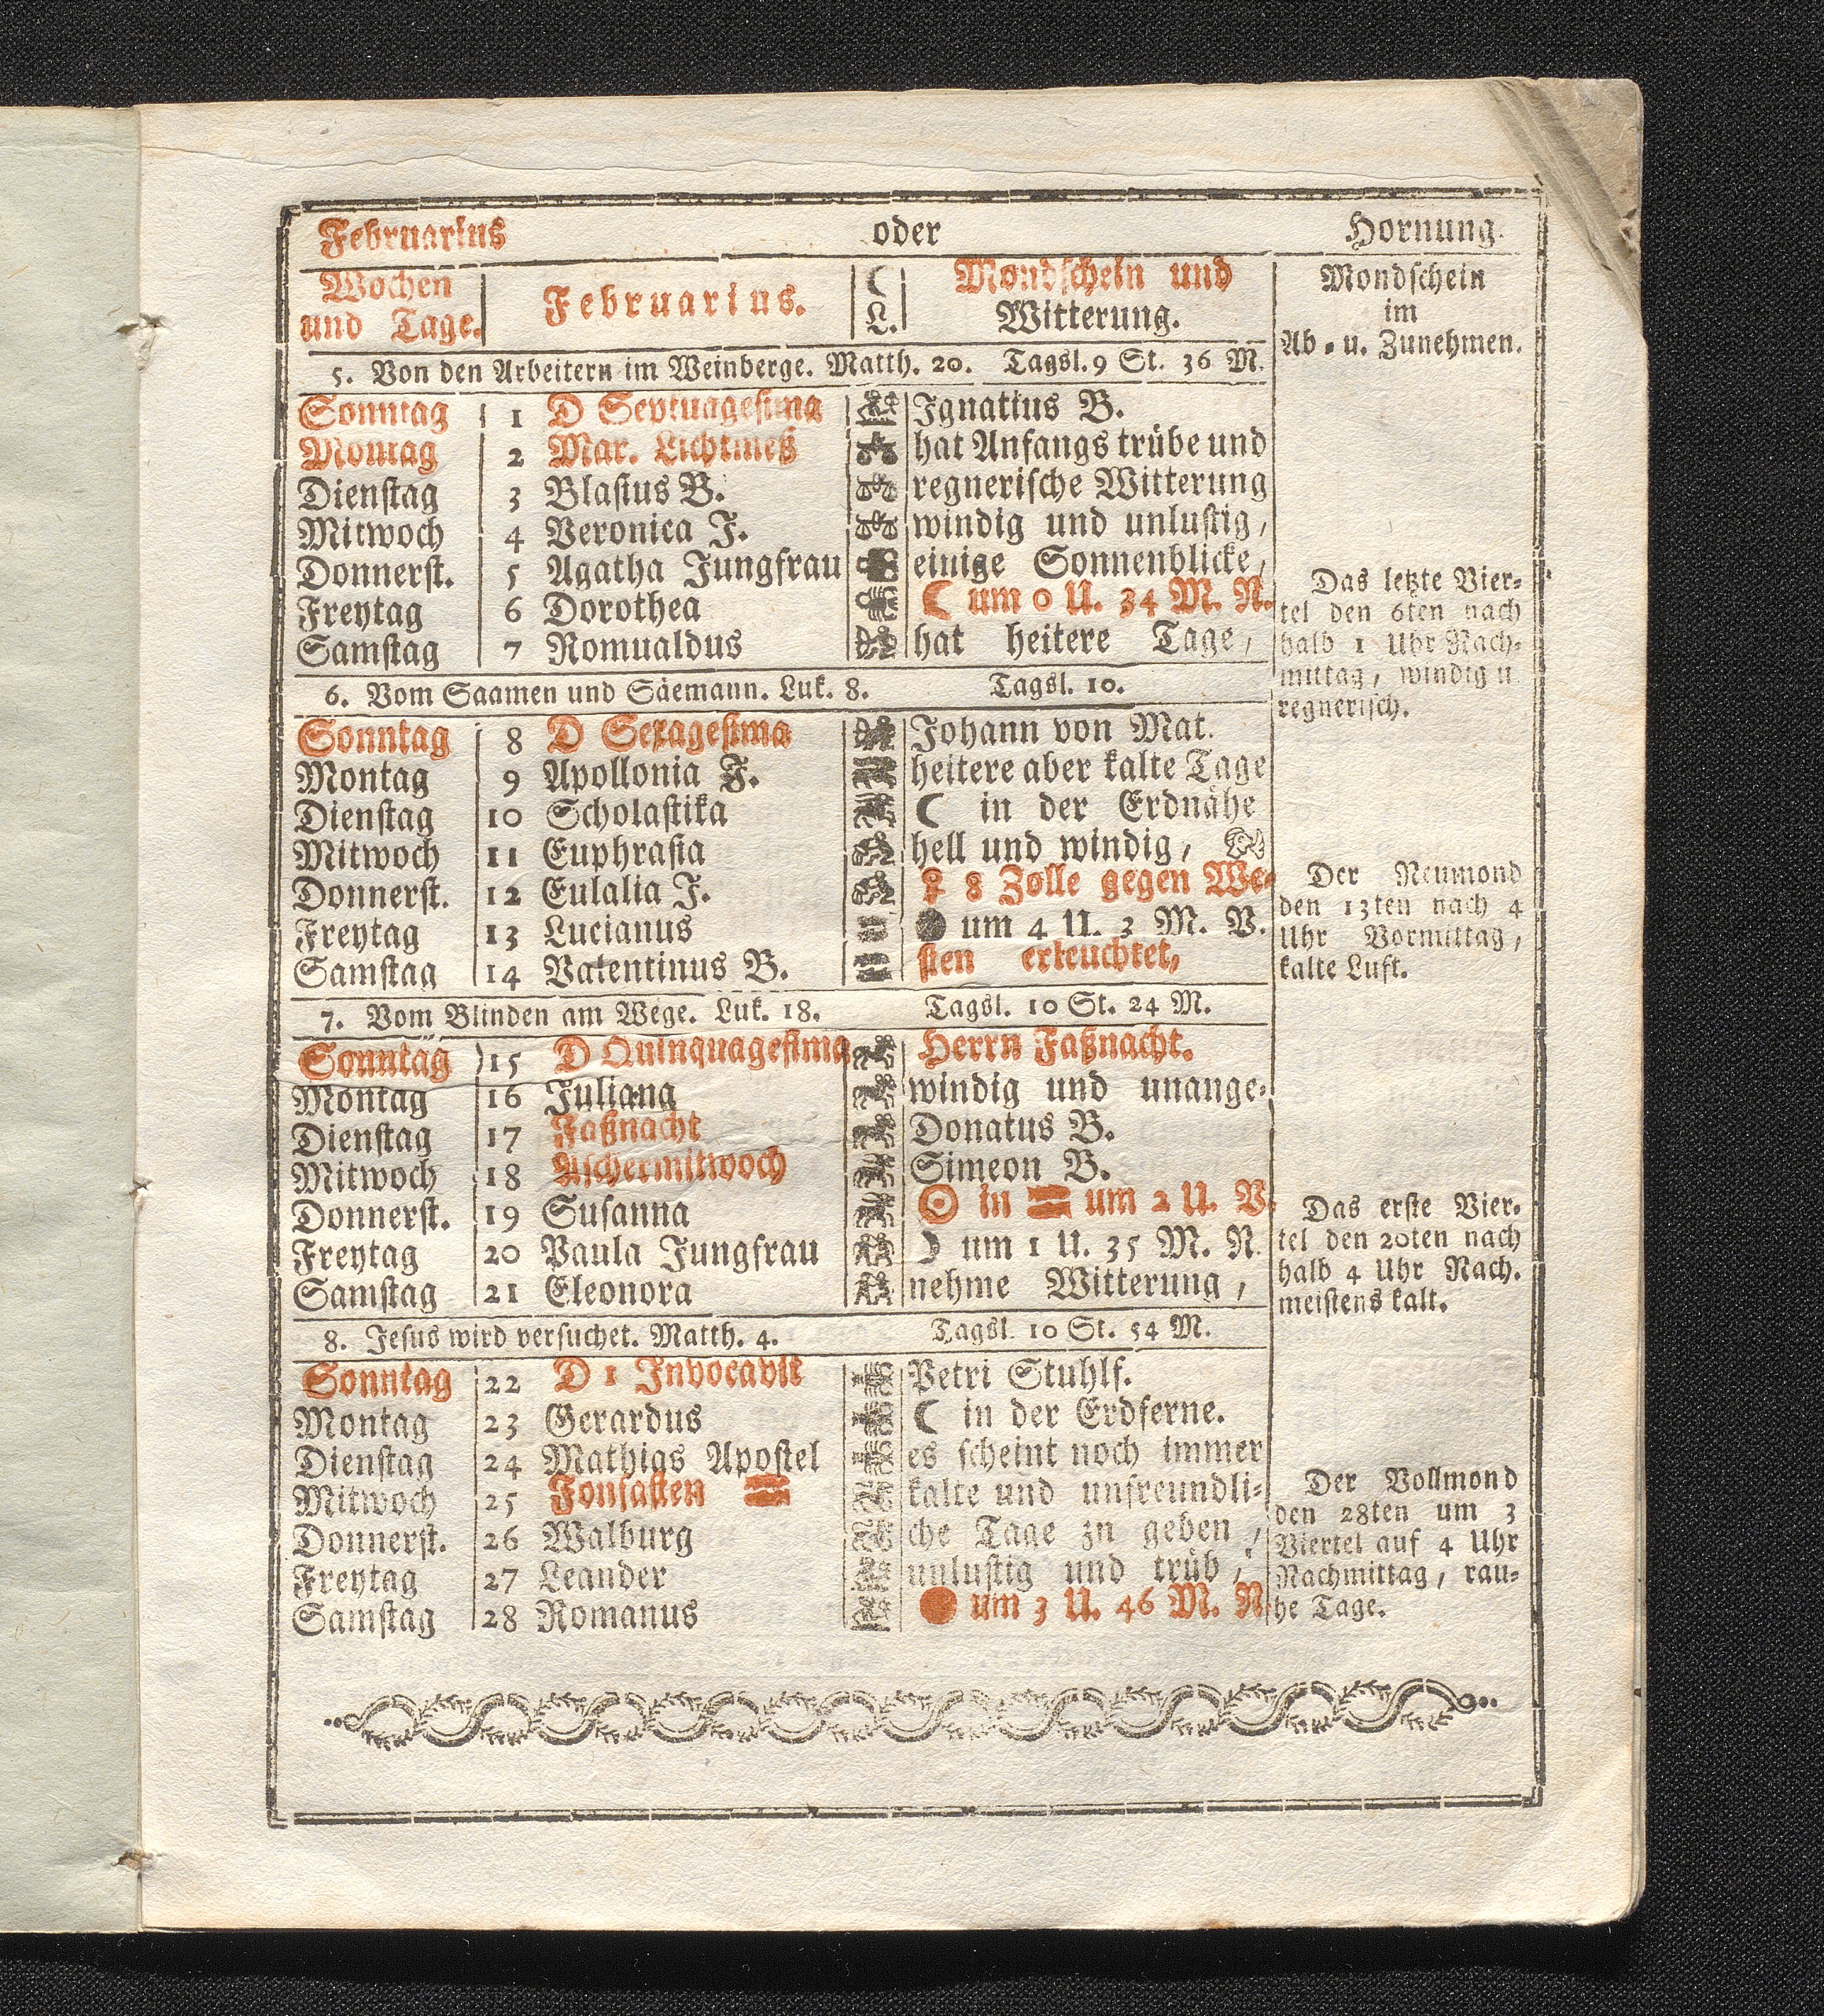 Februarius oder Hornung.
Wochen und Tage. Februarius. ☾ L. Mondschein und Witterung. Mondschein im Ab- u. Zunehmen.
5. Von den Arbeitern im Weinberge. Matth. 20. Tagsl. 9 St. 36 M.
Sonntag 1 D Septuagesima Ignatius B.
Montag 2 Mar. Lichtmeß hat Anfangs trübe und
Dienstag 3 Blasius B. regnerische Witterung
Mitwoch 4 Veronica J. windig und unlustig,
Donnerst. 5 Agatha Jungfrau einige Sonnenblicke,
Freytag 6 Dorothea ☾ um 0 U. 34 M. N.
Samstag 7 Romualdus hat heitere Tage,
Das letzte Vier-
tel den 6ten nach
halb 1 Uhr Nach-
mittag, windig u
regnerisch.
6. Vom Saamen und Säemann. Luk. 8. Tagsl. 10.
Sonntag 8 D Sexagesima Johann von Mat.
Montag 9 Apollonia J. heitere aber kalte Tage
Dienstag 10 Scholastika ☾ in der Erdnähe
Mitwoch 11 Euphrasia hell und windig,
Donnerst. 12 Eulalia J. ♀ 8 Zolle gegen We-
Freytag 13 Lucianus ● um 4 U. 3 M. V.
Samstag 14 Valentinus B. sten erleuchtet,
Der Neumond
den 13ten nach 4
Uhr Vormittag,
kalte Luft.
7. Vom Blinden am Wege. Luk. 18. Tagsl. 10 St. 24 M.
Sonntag 15 D Quinquagesima Herrn Faßnacht.
Montag 16 Juliana windig und unange-
Dienstag 17 Faßnacht Donatus B.
Mitwoch 18 Aschermitwoch Simeon B.
Donnerst. 19 Susanna ☉ in ♓ um 2 U. V.
Freytag 20 Paula Jungfrau ☽ um 1 U. 35 M. N.
Samstag 21 Eleonora nehme Witterung,
Das erste Vier-
tel den 20ten nach
halb 4 Uhr Nach.
meistens kalt.
8. Jesus wird versuchet. Matth. 4. Tagsl. 10 St. 54 M.
Sonntag 22 D 1 Invocavit Petri Stuhlf.
Montag 23 Gerardus ☾ in der Erdferne.
Dienstag 24 Mathias Apostel es scheint noch immer
Mitwoch 25 Fonfasten kalte und unfreundli-
Donnerst. 26 Walburg che Tage zn geben,
Freytag 27 Leander unlustig und trüb,
Samstag 28 Romanus ● um 3 U. 46 M. N.
Der Vollmond
den 28ten um 3
Viertel auf 4 Uhr
Nachmittag, rau-
he Tage.